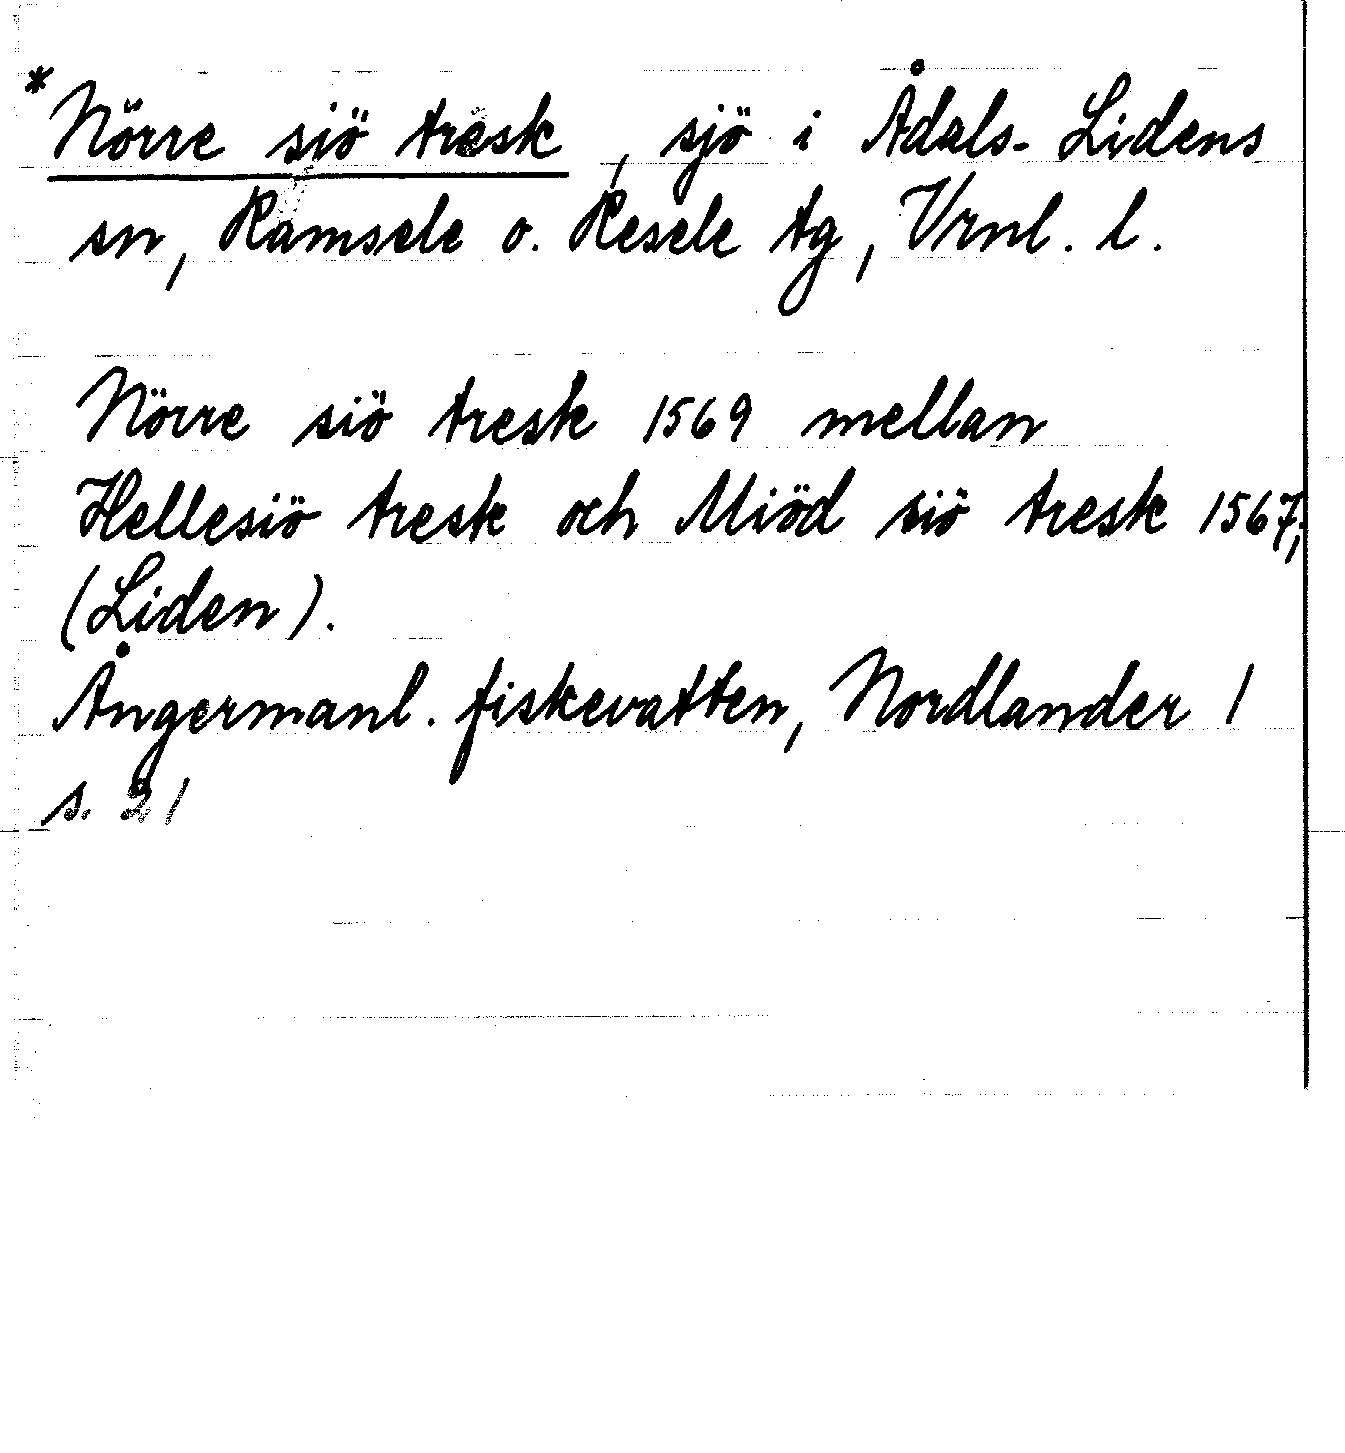 * Nörre siö träsk, sjö i Ådals-Lidens
sn, Ramsele o. Resele tg, Vrnl. l.
Nörre siö tresk 1569 mellan
Hellesiö tresk och Miöd siö tresk 1567,
(Liden).
Ångermanl. fiskevatten, Nordlander 1
s. 21